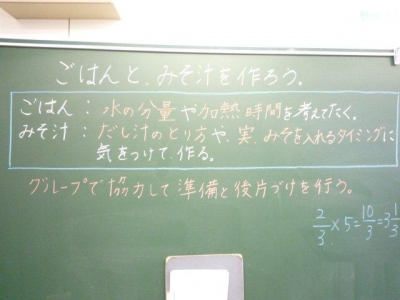 ごはんと、みそ汁を作ろう。
ごはん：水の分量や加熱時間を考えてたく。
みそ汁：だし汁のとり方や、実、みそを入れるタイミングに
気をつけて、作る。
グループで協力して準備と後片づけを行う。
2/3 × 5 = 10/3 = 3 1/3